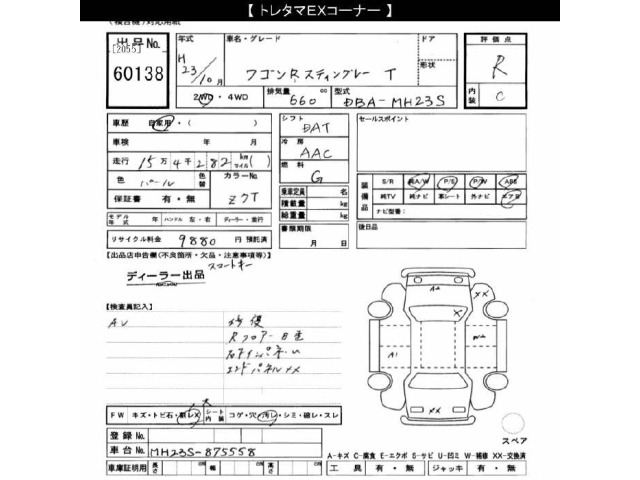 【 トレタマEXコーナー 】
出品No.
[2055]
60138
年式
H 23/10月
車名・グレード
ワゴンRスティングレー T
ドア
形状
評価点
R
内装
C
2WD・4WD
排気量
660 cc
型式
DBA-MH23S
車歴
自家用・( )
車検 年 月
走行 15万4千282 km マイル( )
色
パール
色替
カラーNo.
Z7T
保証書 有・無
モデル年式 年 ハンドル 左・右 ディーラー・並行
リサイクル料金 9880 円 預託済
シフト
DAT
冷房
AAC
燃料
G
乗車定員 名
積載量 kg
総重量 kg
書類期限
月 日
セールスポイント
装備品
S/R 純A/W P/S P/W ABS
純TV 純ナビ 革シート 外ナビ エアB
ナビ型番:
後日品
【出品店申告欄(不良箇所・欠品・注意事項等)】
ディーラー出品
【検査員記入】
AV
修復
エンドパネルXX
A2
XX
A1
XX
FW キズ・トビ石・線レX シート内装 コゲ・穴・汚レ・シミ・破レ・スレ
登録No.
車台No. MH23S-875558
車庫証明用 長さ 幅 高さ
スペア
A-キズ C-腐食 E-エクボ S-サビ U-凹ミ W-補修 XX-交換済
工具 有・無 ジャッキ 有・無